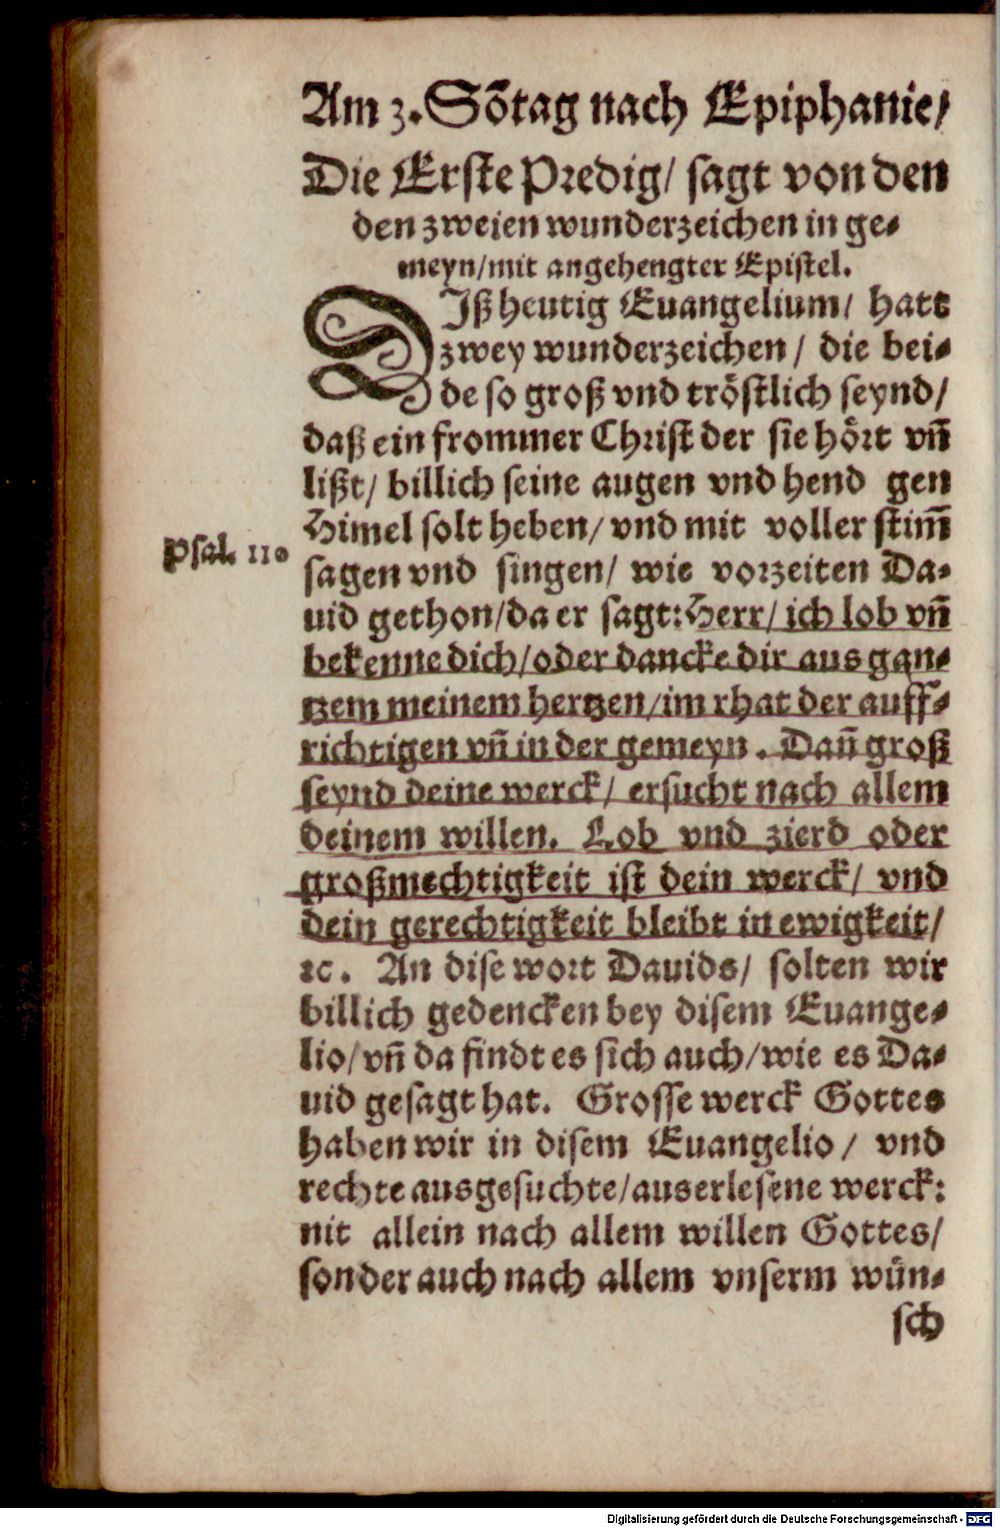 Am 3. Sõtag nach Epiphanie/
Die Erste Predig/ sagt von den
den zweien wunderzeichen in ge-
meyn/mit angehengter Epistel.
DIß heutig Euangelium/ hatt
zwey wunderzeichen/ die bei-
de so groß vnd tröstlich seynd/
daß ein frommer Christ der sie hört vñ
lißt/ billich seine augen vnd hend gen
Himel solt heben/ vnd mit voller stim̃
Psal. 110
sagen vnd singen/ wie vorzeiten Da-
uid gethon/da er sagt: Herr/ ich lob vñ
bekenne dich/oder dancke dir aus gan-
tzem meinem hertzen/im rhat der auff-
richtigen vñ in der gemeyn. Dañ groß
seynd deine werck/ ersucht nach allem
deinem willen. Lob vnd zierd oder
großmechtigkeit ist dein werck/ vnd
dein gerechtigkeit bleibt in ewigkeit/
ꝛc. An dise wort Dauids/ solten wir
billich gedencken bey disem Euange-
lio/vñ da findt es sich auch/wie es Da-
uid gesagt hat. Grosse werck Gottes
haben wir in disem Euangelio/ vnd
rechte ausgesuchte/auserlesene werck:
nit allein nach allem willen Gottes/
sonder auch nach allem vnserm wün-
sch
Digitalisierung gefördert durch die Deutsche Forschungsgemeinschaft - DFG